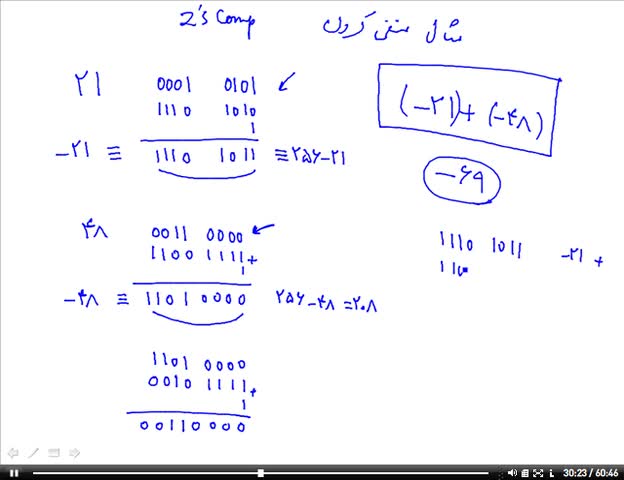 2's Comp مثال منفی کردن
۲۱ 0001 0101
1110 1010
1
-۲۱ ≡ 1110 1011 ≡ ۲۵۶-۲۱
(-۲۱)+(-۴۸)
-۶۹
۴۸ 0011 0000
1100 1111+
1
-۴۸ ≡ 1101 0000 ۲۵۶-۴۸=۲۰۸
1110 1011 -۲۱ +
110
1101 0000
0010 1111+
1
00110000
30:23 / 60:46